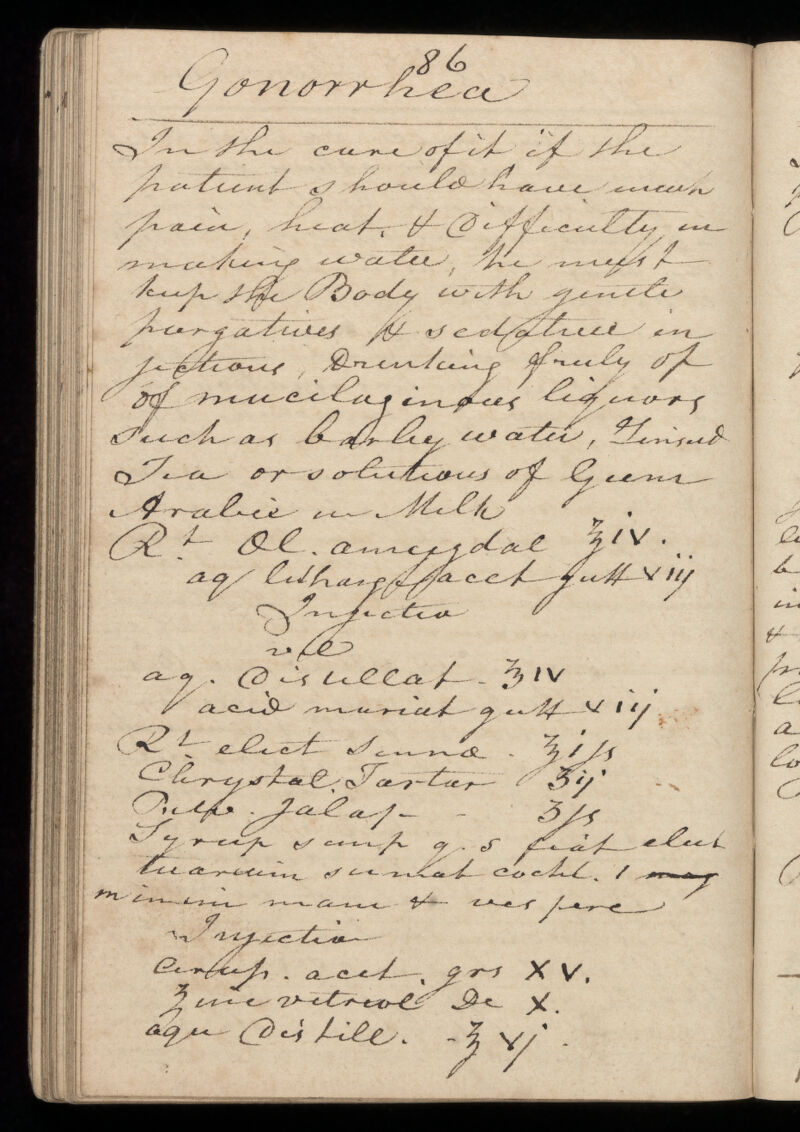 86
Gonorrhea
In the cure of it if the
patient should have much
pain, heat, & Difficulty in
making water, he must
keep the Body with gentle
purgatives & sedative in
jections, Drinking freely of
of mucilaginous liquors
such as barley water, Linseed
Tea or solutions of Gum
Arabic in Milk
Rt Ol. amygdal ℥iv.
aq litharg acet gutt xiij
Injectio
vel
aq. Distillat - ℥iv
acid muriat gutt xiij
Rt elect Sennæ - ℥jſs
Chrystal. Tartar ʒij
Pulv. Jalap - - ʒſs
Syrup simp q. s fiat elect
tuarium sumat cochl. 1 mag
minim mane & vespere
Injectio
Cerus. acet. grs XV.
Zinc vitreol Do X.
aqu Distill. - ℥vj.